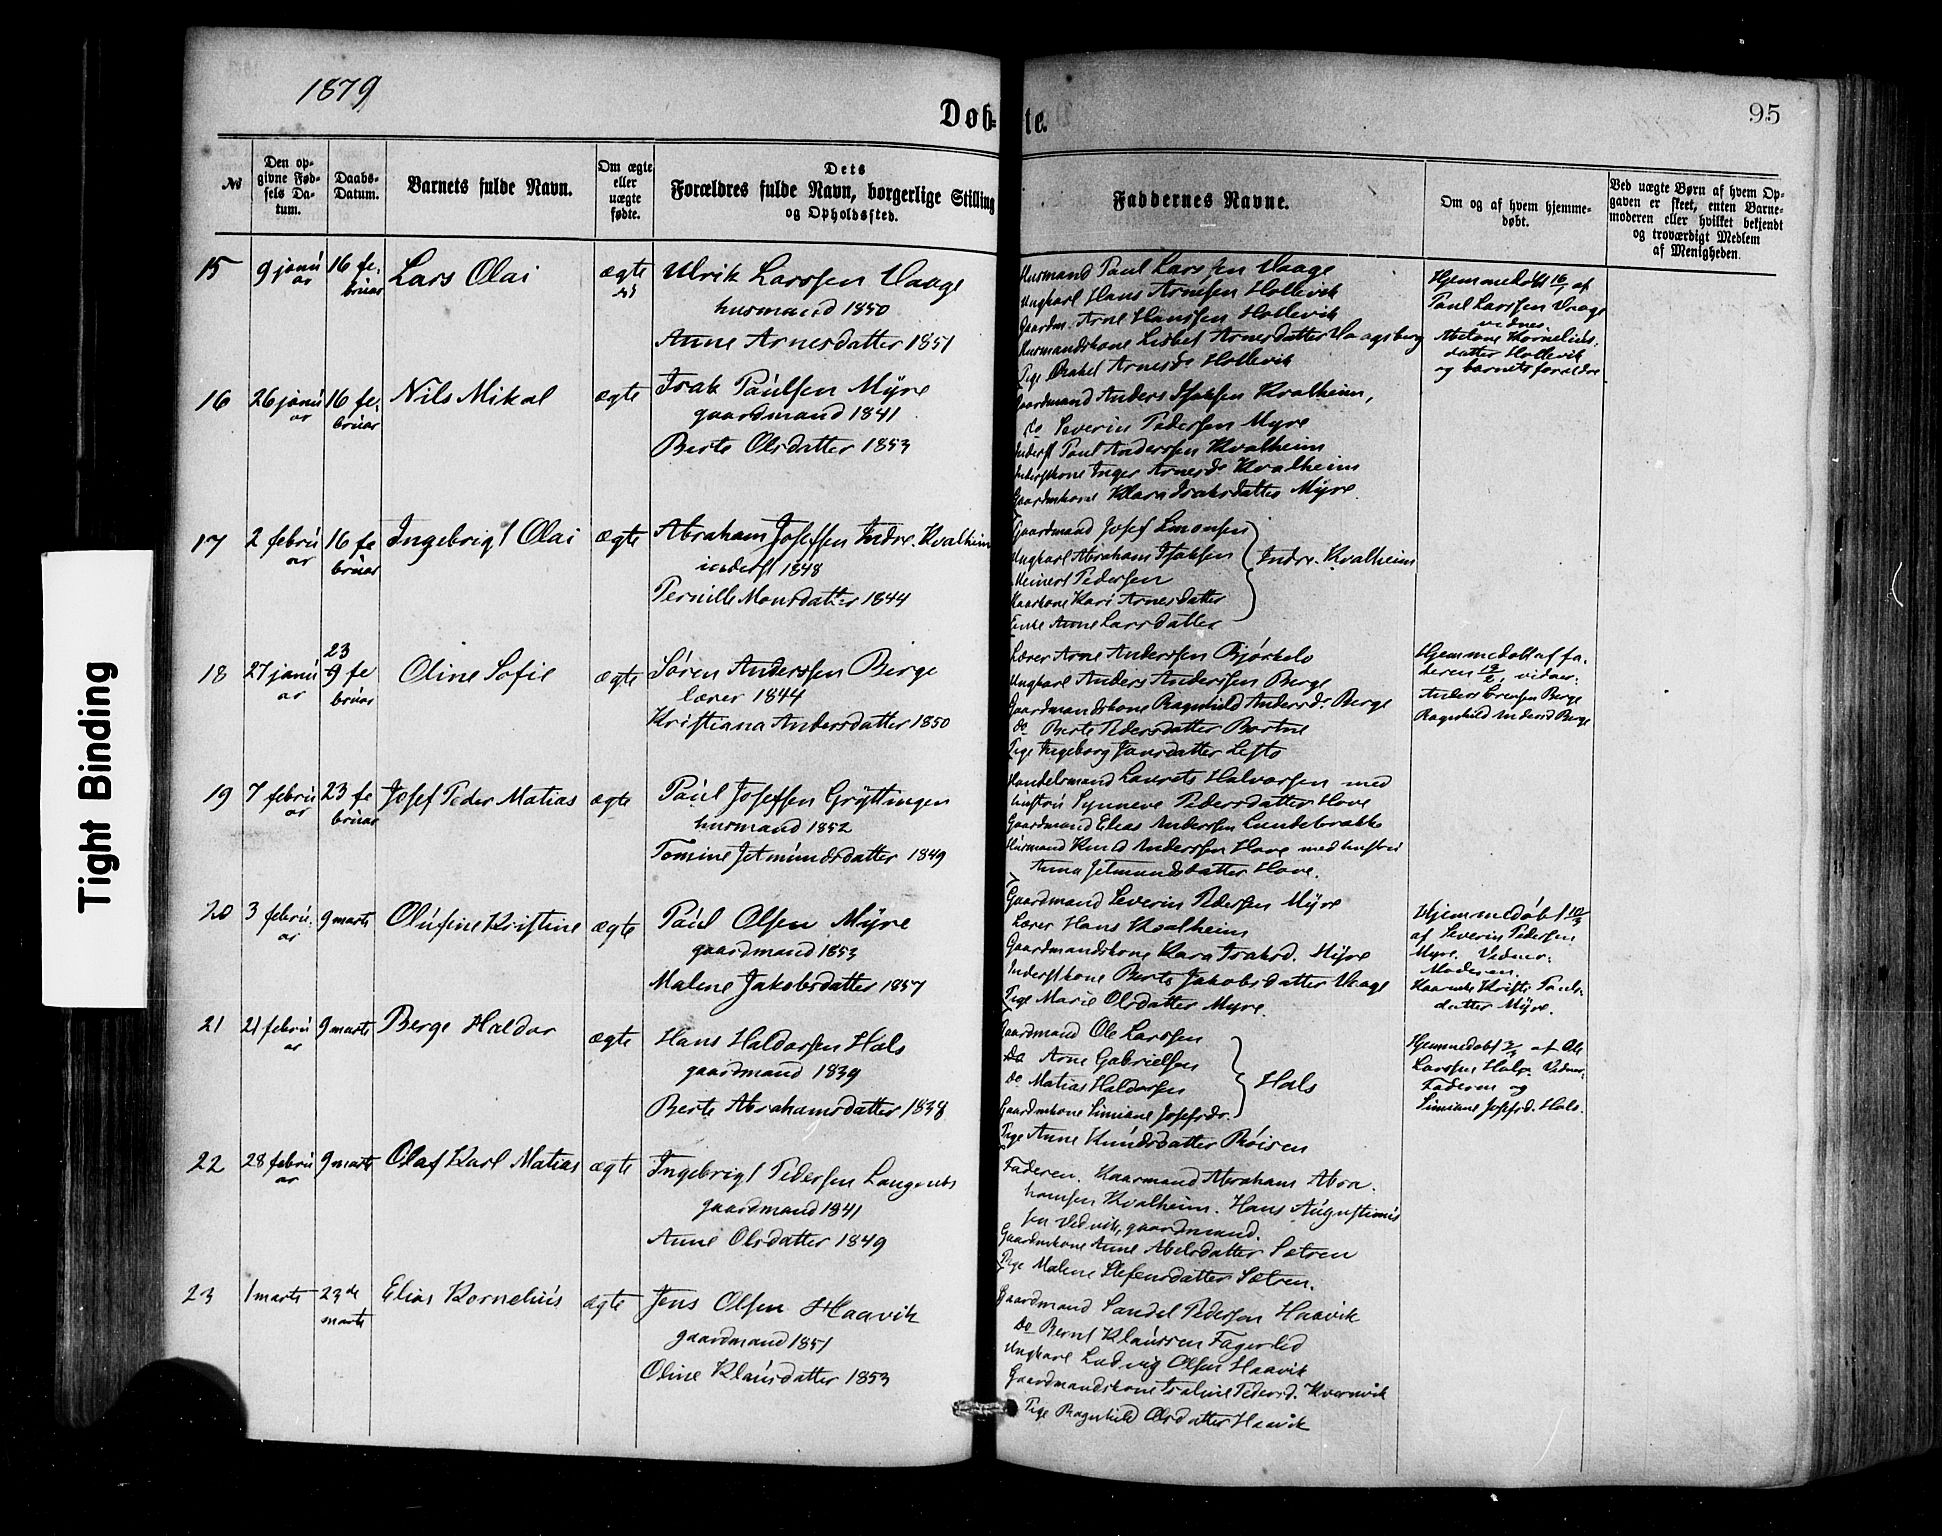 1879
Døb-
te.
95
№
Den op-
givne Fød-
sels Da-
tum.
Daabs-
Datum.
Barnets fulde Navn.
Om ægte
eller
uægte
fødte.
Dets
Forældres fulde Navn, borgerlige Stilling
og Opholdssted.
Faddernes Navne.
Om og af hvem hjemme-
døbt.
Ved uægte Børn af hvem Op-
gaven er skeet, enten Barne-
moderen eller hvilket bekjendt
og troværdigt Medlem
af Menigheden.
15
9 janu
ar
16 fe,
bruar
Lars Olai
ægte
Ulrik Larssen Vaage
husmand 1850
Anne Arnesdatter 1851
Husmand Paul Larssen Vaage
Ungkarl Hans Arnesen Hollevik
Gaardm. Arne Hanssen Hollevik
Husmandskone Lisbet Arnesdatter Vaagsberg
Pige Rakel Arnesd. Hollevik
Hjemmedøbt 16/1 af
Paul Larssen Vaage
vidner
Kornelius,
datter Hollevik
og barnets forældre
16
26 janu
ar
16 fe,
bruar
Nils Mikal
ægte
Isak Paulsen Myre
gaardmand 1841
Berte Olsdatter 1853
Gaardmand Anders Isaksen Kvalheim,
do Severin Pedersen Myre
Inderst Paul Anderssen Kvalheim
Inderstkone Inger Arnesd. Kvalheim
Gaardmkone Klara Isaksdatter Myre
17
2 febru
ar
16 fe
bruar
Ingebrigt Olai
ægte
Abraham Josefsen Indre. Kvalheim
inderst 1848
Pernille Monsdatter 1844
Gaardmand Josef Simonsen
Ungkarl Abraham Isaksen
Meinert Pedersen
Kaarkone Kari Arnesdatter
Enke Anne Larsdatter
Indre. Kvalheim
18
27 janu
ar
23
9 fe
bruar
Oline Sofie
ægte
Søren Anderssen Berge
lærer 1844
Kristiana Andersdatter 1850
Lærer Arne Anderssen Bjørkelo
Ungkarl Anders Anderssen Berge
Gaardmandskone Ragnhild Andersd. Berge
do Berte Pedersdatter Bortne
Pige Ingeborg Jansdatter Lefto
Hjemmedøbt af fa,
deren, vidner:
Anders Berge
Ragnhild Andersd Berge
19
7 febru
ar
23 fe
bruar
Josef Peder Matias
ægte
Paul Josefsen Gryttingen
husmand 1852
Tomine Jetmundsdatter 1849
Handelsmand Laurets Halvorsen med
hustru Synneve Pedersdatter Hove
Gaardmand Elias Anderssen Lundebrække
Husmand Knud Anderssen Hove med hustru
Anna Jetmundsdatter Hove.
20
3 febru,
ar
9 marts
Olufine Kristine
ægte
Paul Olsen Myre
gaardmand 1853
Malene Jakobsdatter 1857
Gaardmand Severin Pedersen Myre
Lærer Hans Kvalheim
Gaardmandskone Kara Isaksd. Myre
Inderstkone Berte Jakobsdatter Vaage
Pige Marie Olsdatter Myre.
Hjemmedøbt
af Severin Pedersen
Myre. Vidner:
Moderen.
Pauls-
datter Myre.
21
21 febru
ar
9 marts
Berge Haldor
ægte
Hans Haldorsen Hals
gaardmand 1839
Berte Abrahamsdatter 1838
Gaardmand Ole Larssen
Do Arne Gabrielsen
Do Matias Haldorsen
Gaardmkone Simiane Josefsdr.
Hals
Pige Anne Knudsdatter Røisen
Hjemmedøbt 2/3 af Ole
Larssen Hals. Vidner:
Faderen og
Simiane Josefsd. Hals.
22
28 febru
ar
9 marts
Olaf Karl Matias
ægte
Ingebrigt Pedersen Langenes
gaardmand 1841
Anne Olsdatter 1849
Faderen. Kaarmand Abraham Abra,
hamsen Kvalheim. Hans Augustinus
sen Vedvik, gaardmand.
Gaardmkone Anne Abelsdatter Sætren
Pige Malene Stefensdatter Sætren.
23
1 marts
23de
marts
Elias Kornelius
ægte
Jens Olsen Haavik
gaardmand 1851
Oline Klausdatter 1853
Gaardmand Sandel Pedersen Haavik
Do Bernt Klaussen Fagerlid
Ungkarl Ludvig Olsen Haavik
Gaardmandskone Isaline Pedersd. Kvernevik
Pige Ragnhild Olsdatter Haavik
Tight Binding